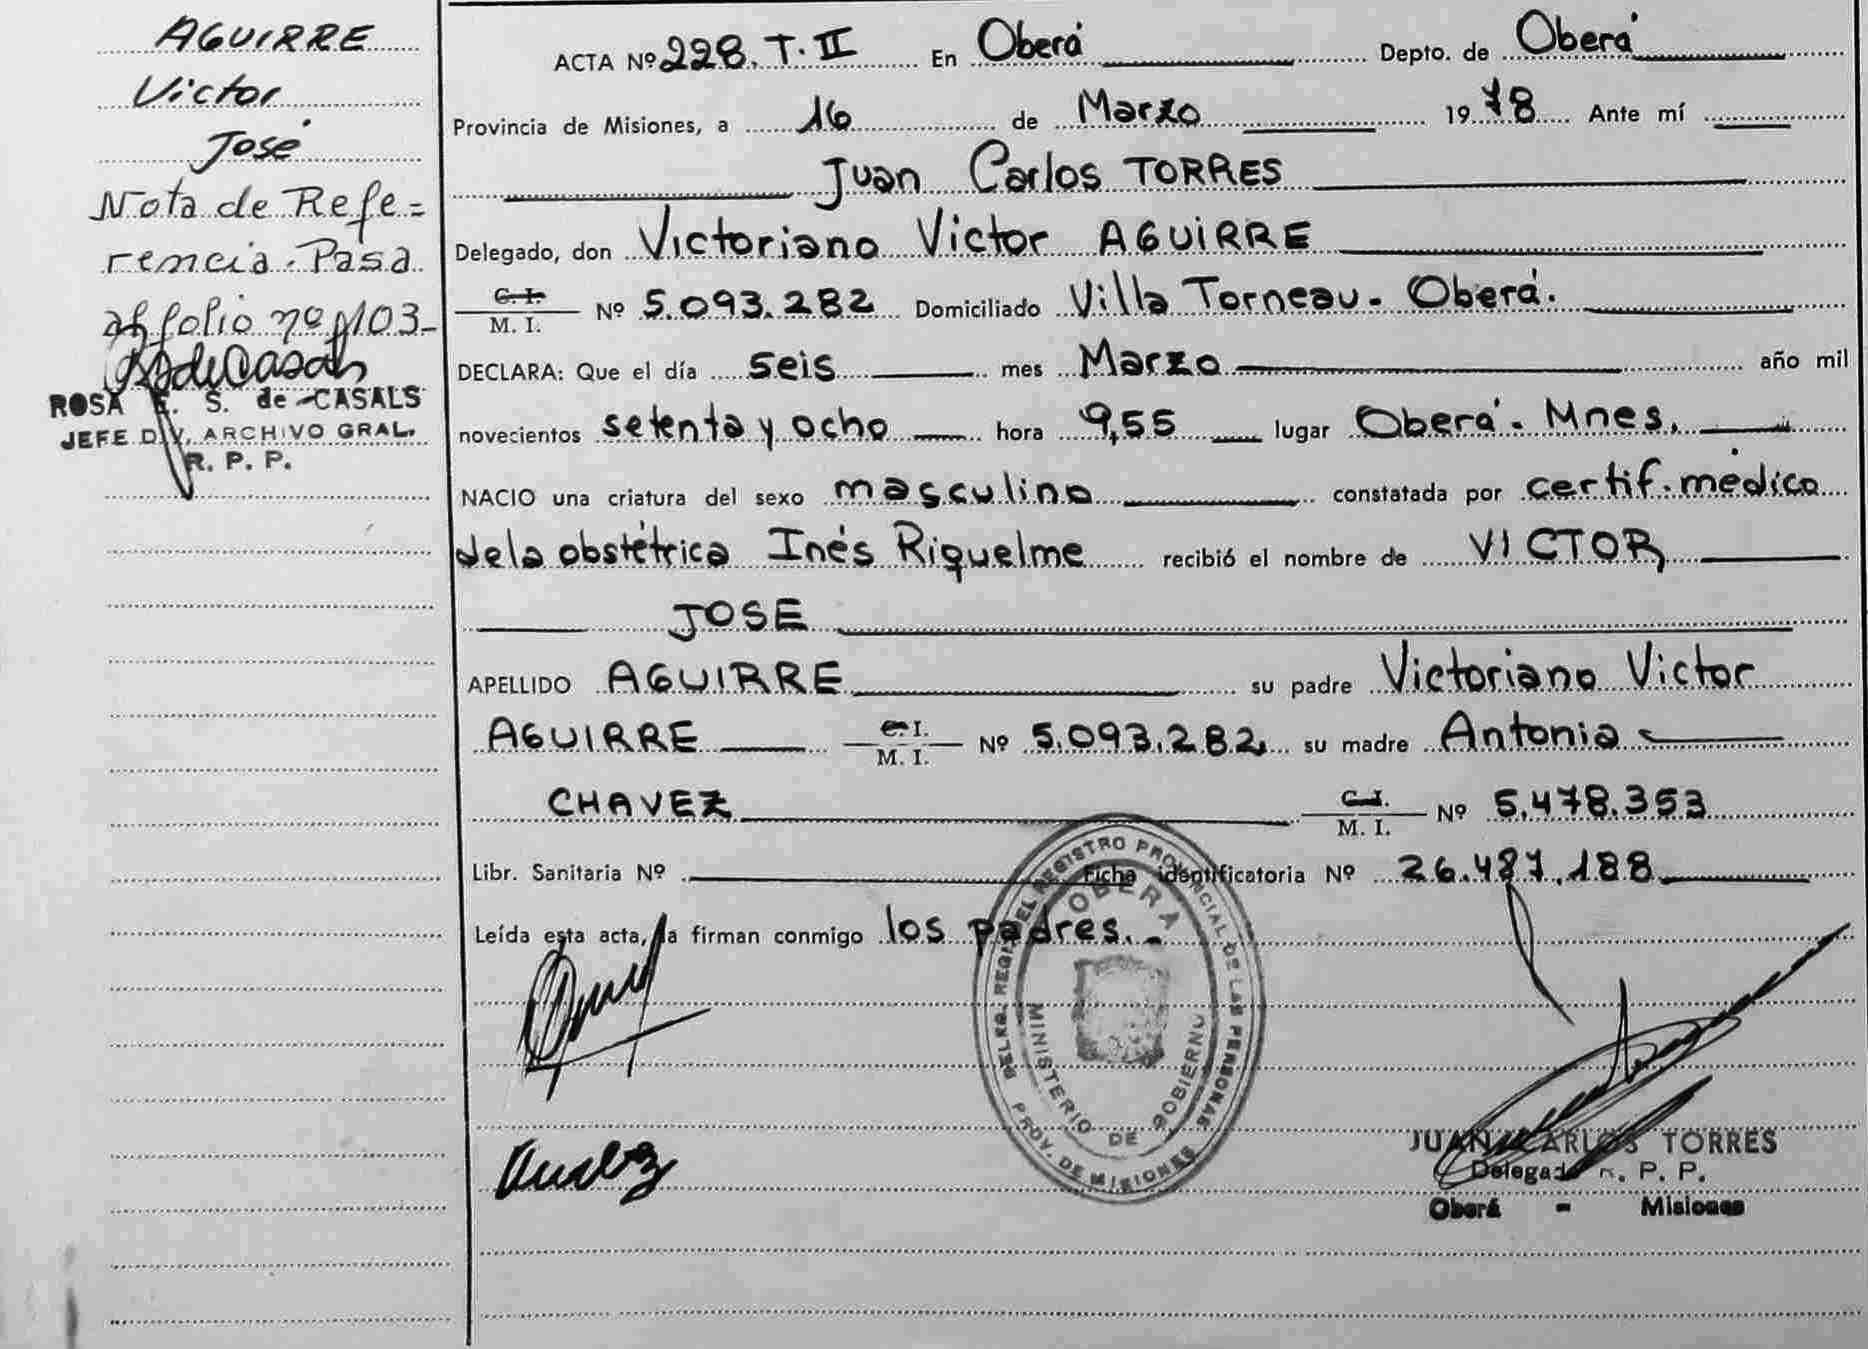 AGUIRRE
Victor
José
Nota de Refe=
rencia. Pasa
al folio nº 103-
ROSA E. S. de CASALS
JEFE DIV. ARCHIVO GRAL.
R. P. P.
ACTA Nº 228. T. II En Oberá Depto. de Oberá
Provincia de Misiones, a 16 de Marzo 1978 Ante mí
Juan Carlos TORRES
Delegado, don Victoriano Victor AGUIRRE
C. I.
M. I. Nº 5.093.282 Domiciliado Villa Torneau - Oberá.
DECLARA: Que el día seis mes Marzo año mil
novecientos setenta y ocho hora 9,55 lugar Oberá - Mnes.
NACIO una criatura del sexo masculino constatada por certif. médico
de la obstétrica Inés Riquelme recibió el nombre de VICTOR
JOSE
APELLIDO AGUIRRE su padre Victoriano Victor
AGUIRRE C. I.
M. I. Nº 5.093.282 su madre Antonia
CHAVEZ C. I.
M. I. Nº 5.478.353
Libr. Sanitaria Nº Ficha identificatoria Nº 26.487.188
Leída esta acta, la firman conmigo los padres.-
REGISTRO PROVINCIAL DE LAS PERSONAS
OBERA
MINISTERIO DE GOBIERNO
PROV. DE MISIONES
JUAN CARLOS TORRES
Delegado R. P. P.
Oberá - Misiones